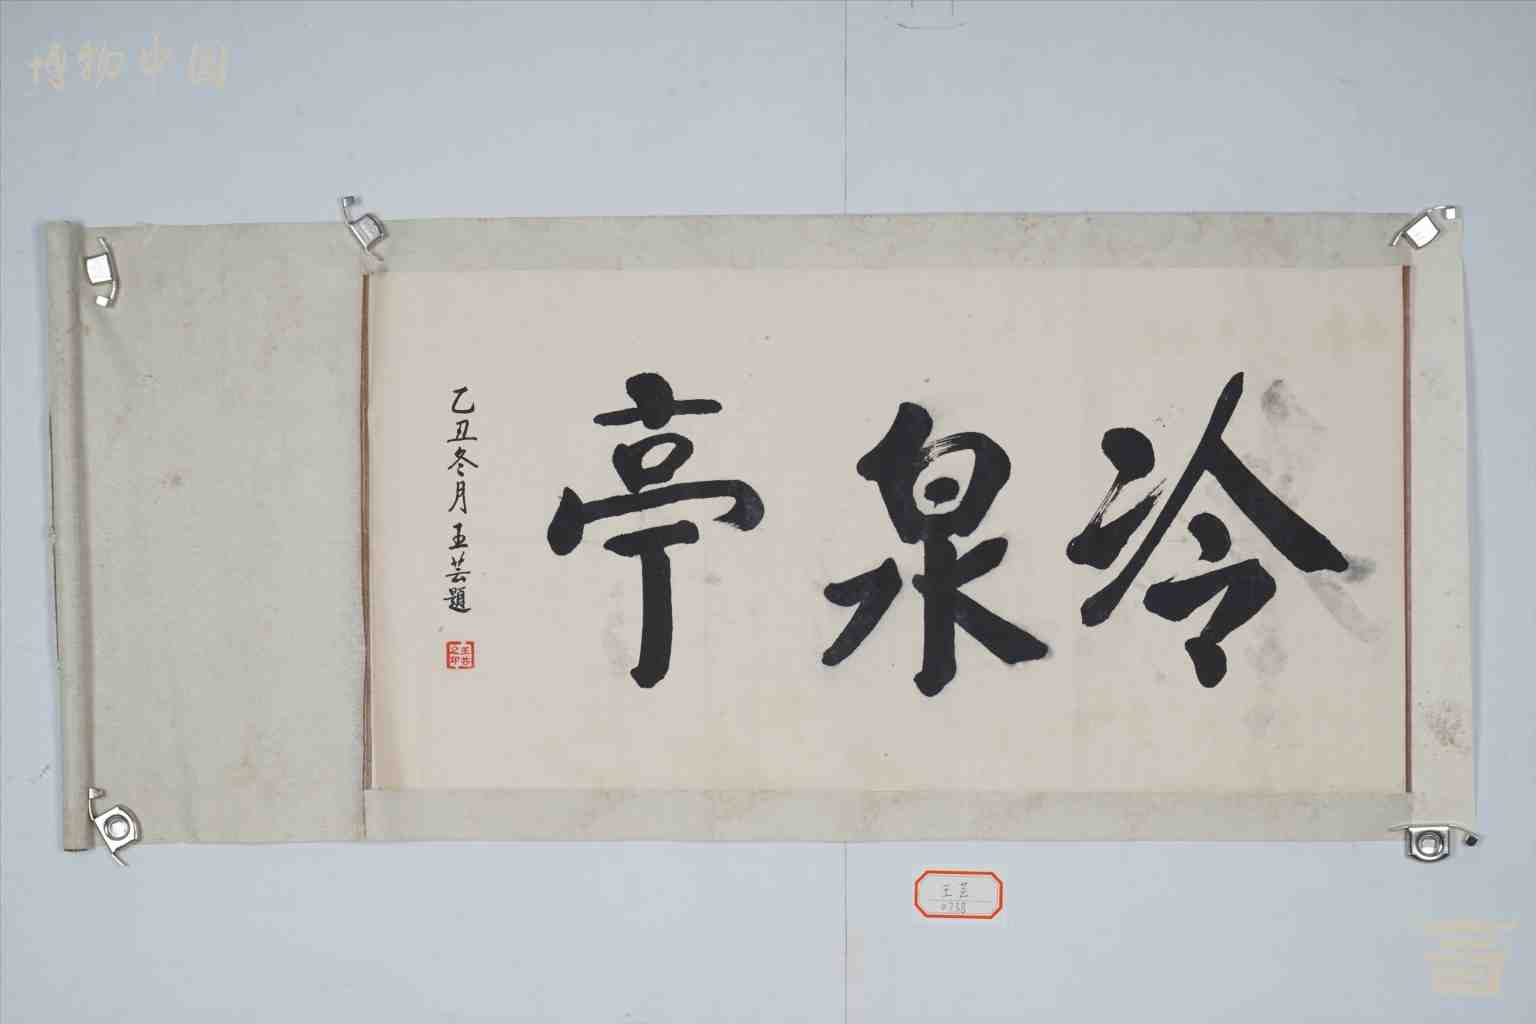 博物中国
冷泉亭
乙丑冬月王芸题
王芸之印
王芸
0738